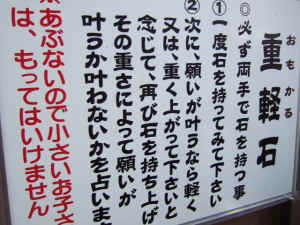 おもかる
重軽石
◎必ず両手で石を持つ事
①一度石を持ってみて下さい
②次に、願いが叶うなら軽く
又は、重く上がって下さいと
念じて、再び石を持ち上げ
その重さによって願いが
叶うか叶わないかを占いま
あぶないので小さいお子さ
は、もってはいけません